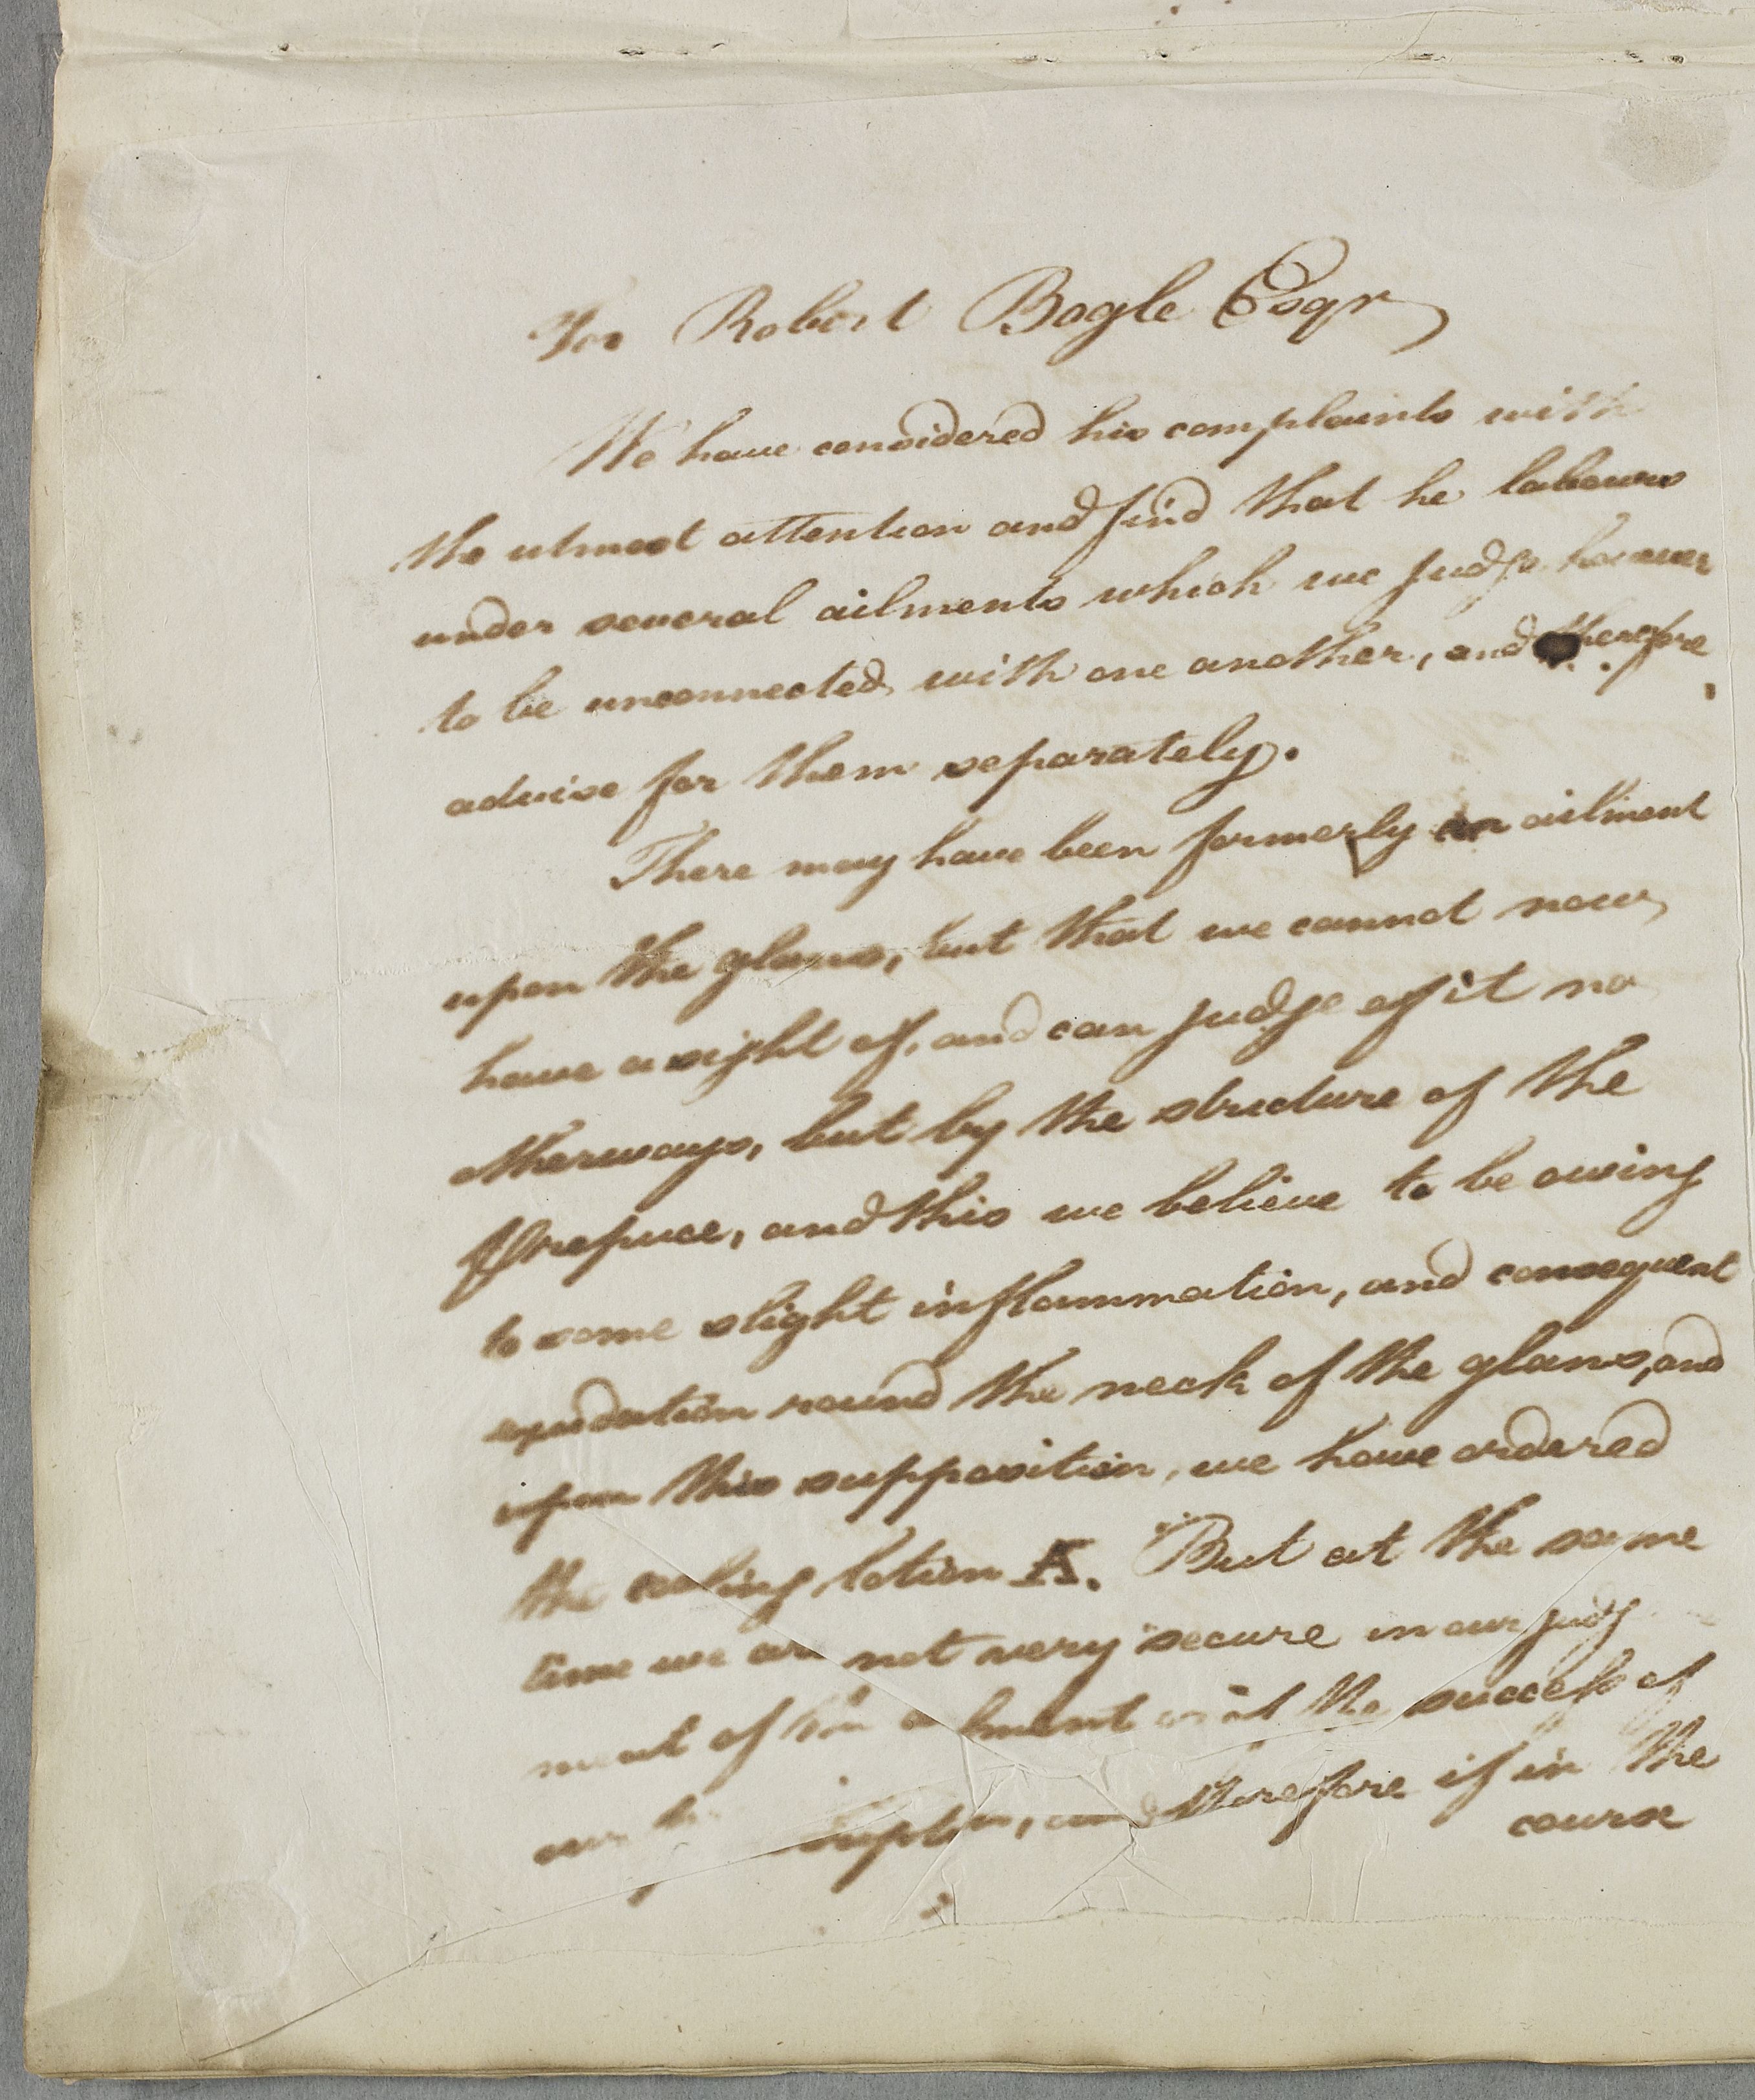 For Robert Bogle Esqr
We have considered his complaints with
the utmost attention and find that he labours
under several ailments which we judge however
to be unconnected with one another, and therefore
advise for them separately.
There may have been formerly an ailment
upon the glans, but that we cannot now
have a sight of, and can judge of it no
otherways, but by the structure of the
Prepuce, and this we believe to be owing
to some slight inflammation, and consequent
exudation round the neck of the glans, and
upon this supposition, we have ordered
the cooling lotion A. But at the same
time we are not very secure in our judg
ment of this ailment the success of
our and therefore if in the
course